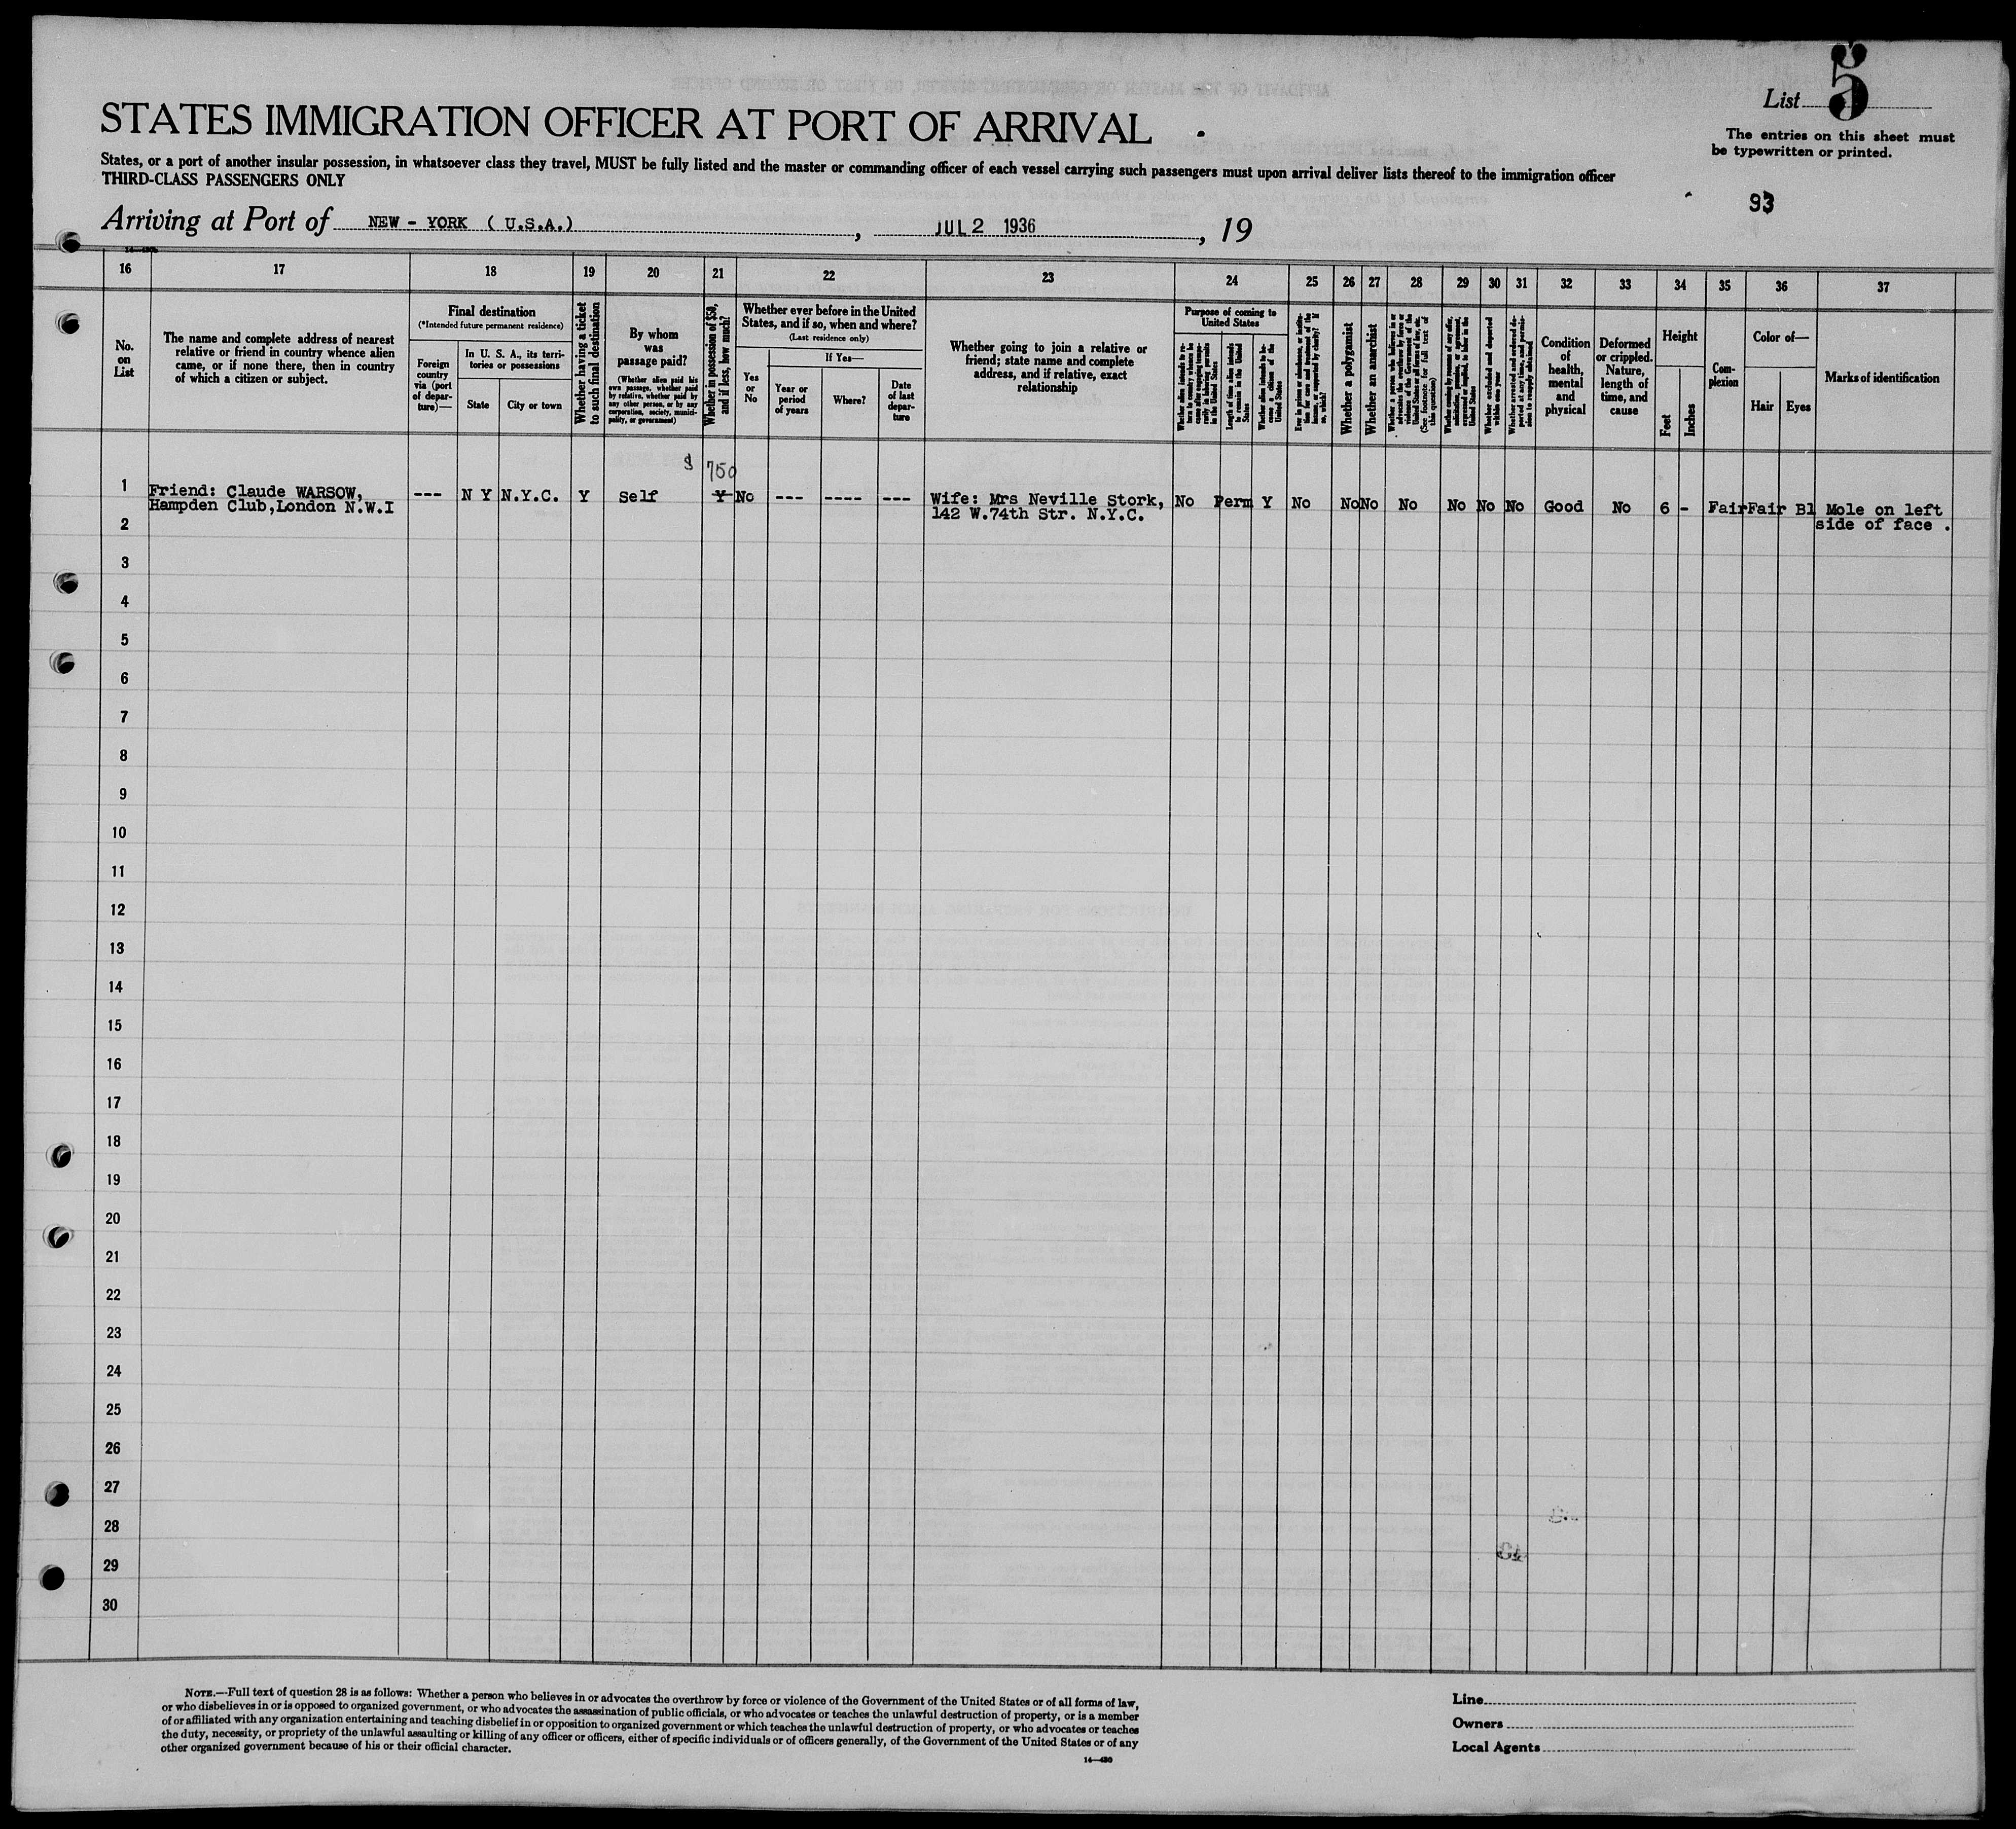 List 5
STATES IMMIGRATION OFFICER AT PORT OF ARRIVAL
The entries on this sheet must
be typewritten or printed.
States, or a port of another insular possession, in whatsoever class they travel, MUST be fully listed and the master or commanding officer of each vessel carrying such passengers must upon arrival deliver lists thereof to the immigration officer
THIRD-CLASS PASSENGERS ONLY
93
Arriving at Port of NEW - YORK ( U.S.A.) , JUL 2 1936 , 19
16 17 18 19 20 21 22 23 24 25 26 27 28 29 30 31 32 33 34 35 36 37
No.
on
List
The name and complete address of nearest
relative or friend in country whence alien
came, or if none there, then in country
of which a citizen or subject.
Final destination
(*Intended future permanent residence)
Foreign
country
via (port
of depar-
ture)—
In U. S. A., its terri-
tories or possessions
State
City or town
Whether having a ticket
to such final destination
By whom
was
passage paid?
(Whether alien paid his
own passage, whether paid
by relative, whether paid by
any other person, or by any
corporation, society, munici-
pality, or government)
Whether in possession of $50,
and if less, how much?
Whether ever before in the United
States, and if so, when and where?
(Last residence only)
Yes
or
No
If Yes—
Year or
period
of years
Where?
Date
of last
depar-
ture
Whether going to join a relative or
friend; state name and complete
address, and if relative, exact
relationship
Purpose of coming to
United States
Length of time alien intends
to remain in the United
States
Whether alien intends to be-
come a citizen of the
United States
Whether a polygamist
Whether an anarchist
Whether excluded and deported
within one year
Condition
of
health,
mental
and
physical
Deformed
or crippled.
Nature,
length of
time, and
cause
Height
Feet
Inches
Com-
plexion
Color of—
Hair
Eyes
Marks of identification
$ 750
1 Friend: Claude WARSOW, --- N Y N.Y.C. Y Self Y No --- ---- --- Wife: Mrs Neville Stork, No Perm Y No No No No No No No Good No 6 - Fair Fair Bl Mole on left
Hampden Club,London N.W.I 142 W.74th Str. N.Y.C. side of face .
2
3
4
5
6
7
8
9
10
11
12
13
14
15
16
17
18
19
20
21
22
23
24
25
26
27
28
29
30
NOTE.—Full text of question 28 is as follows: Whether a person who believes in or advocates the overthrow by force or violence of the Government of the United States or of all forms of law,
or who disbelieves in or is opposed to organized government, or who advocates the assassination of public officials, or who advocates or teaches the unlawful destruction of property, or is a member
of or affiliated with any organization entertaining and teaching disbelief in or opposition to organized government or which teaches the unlawful destruction of property, or who advocates or teaches
the duty, necessity, or propriety of the unlawful assaulting or killing of any officer or officers, either of specific individuals or of officers generally, of the Government of the United States or of any
other organized government because of his or their official character.
14—430
Line
Owners
Local Agents